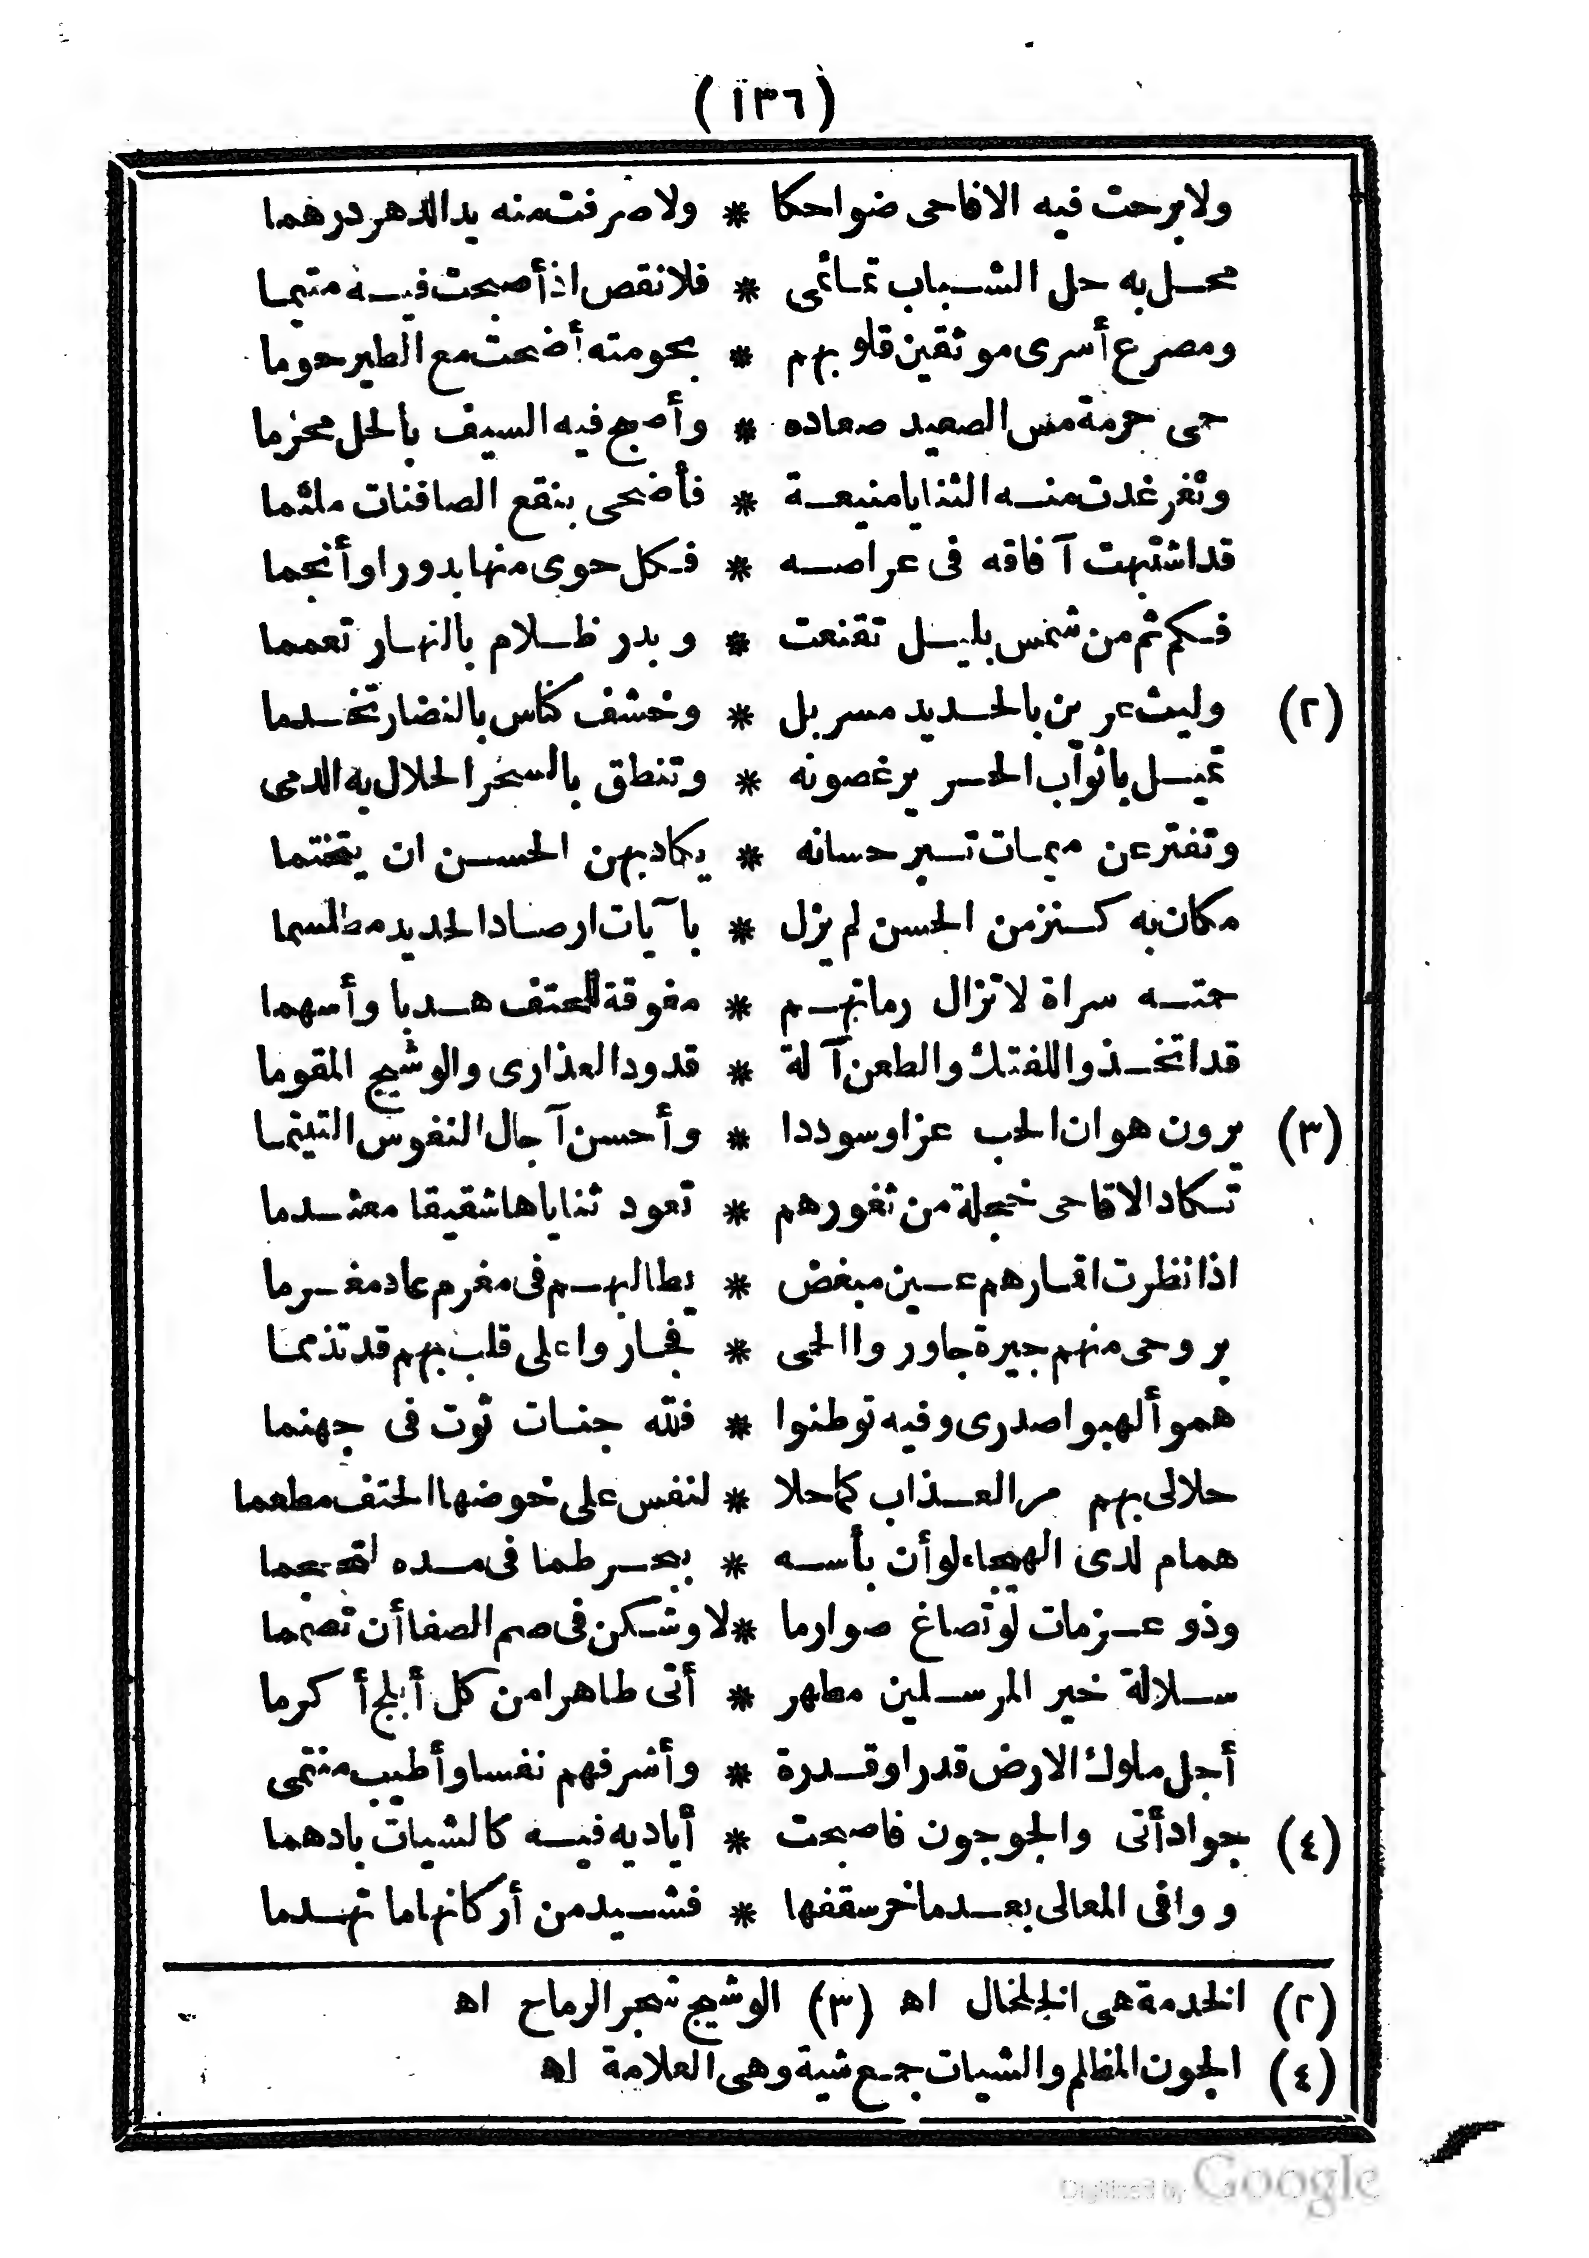 (١٣٦)
ولا برحت فيه الاقاحى ضواحكا * ولا صرفت منه يد الدهر درهما
محل به حل الشباب تمائمى * فلا نقص اذ أصبحت فيه متيما
ومصرع أسرى موثقين قلوبهم * بحومته أضحت مع الطير حوما
حمى حرمة مس الصعيد صعاده * وأصبح فيه السيف بالحل محرما
وثغر غدت منه الثنايا منيعة * فأضحى بنقع الصافنات ملثما
قد اشتبهت آفاقه فى عراصه * فكل حوى منها بدورا وأنجما
فكم ثم من شمس بليل تقنعت * وبدر ظلام بالنهار تعمما
(٢) وليث عرين بالحديد مسربل * وخشف كناس بالنضار تخدما
تميل بأثواب الحرير غصونه * وتنطق بالسحر الحلال به الدمى
وتفتر عن ميمات تبر حسانه * يكاد بهن الحسن ان يتختما
مكان به كنز من الحسن لم يزل * بآيات ارصاد الحديد مطلسما
حمته سراة لا تزال رماتهم * مفوقة للحتف هدبا وأسهما
قد اتخذوا للفتك والطعن آلة * قدود العذارى والوشيج المقوما
(٣) يرون هوان الحب عزا وسوددا * وأحسن آجال النفوس التيتما
تكاد الاقاحى خجلة من ثغورهم * تعود ثناياها شقيقا معندما
اذا نظرت اقمارهم عين مبغض * يطالبهم فى مغرم عاد مغرما
بروحى منهم جيرة جاوروا الحمى * فجاروا على قلب بهم قد تذمما
همو ألهبوا صدرى وفيه توطنوا * فلله جنات ثوت فى جهنما
حلالى بهم مر العذاب كما حلا * لنفس على خوضها الحتف مطعما
همام لدى الهيجاء لو أن بأسه * ببحر طما فى مده لتجعما
وذو عزمات لو تصاغ صوارما * لاوشكن فى صم الصفا أن تصمما
سلالة خير المرسلين مطهر * أتى طاهرا من كل أبلج أكرما
أجل ملوك الارض قدرا وقدرة * وأشرفهم نفسا وأطيب منتمى
(٤) جواد أتى والجو جون فاصبحت * أياديه فيه كالشيات بادهما
ووافى المعالى بعد ما خر سقفها * فشيد من أركانها ما تهدما
(٢) الخدمة هى الخلخال اه (٣) الوشيج شجر الرماح اه
(٤) الجون المظلم والشيات جمع شية وهى العلامة اه
Digitized by Google